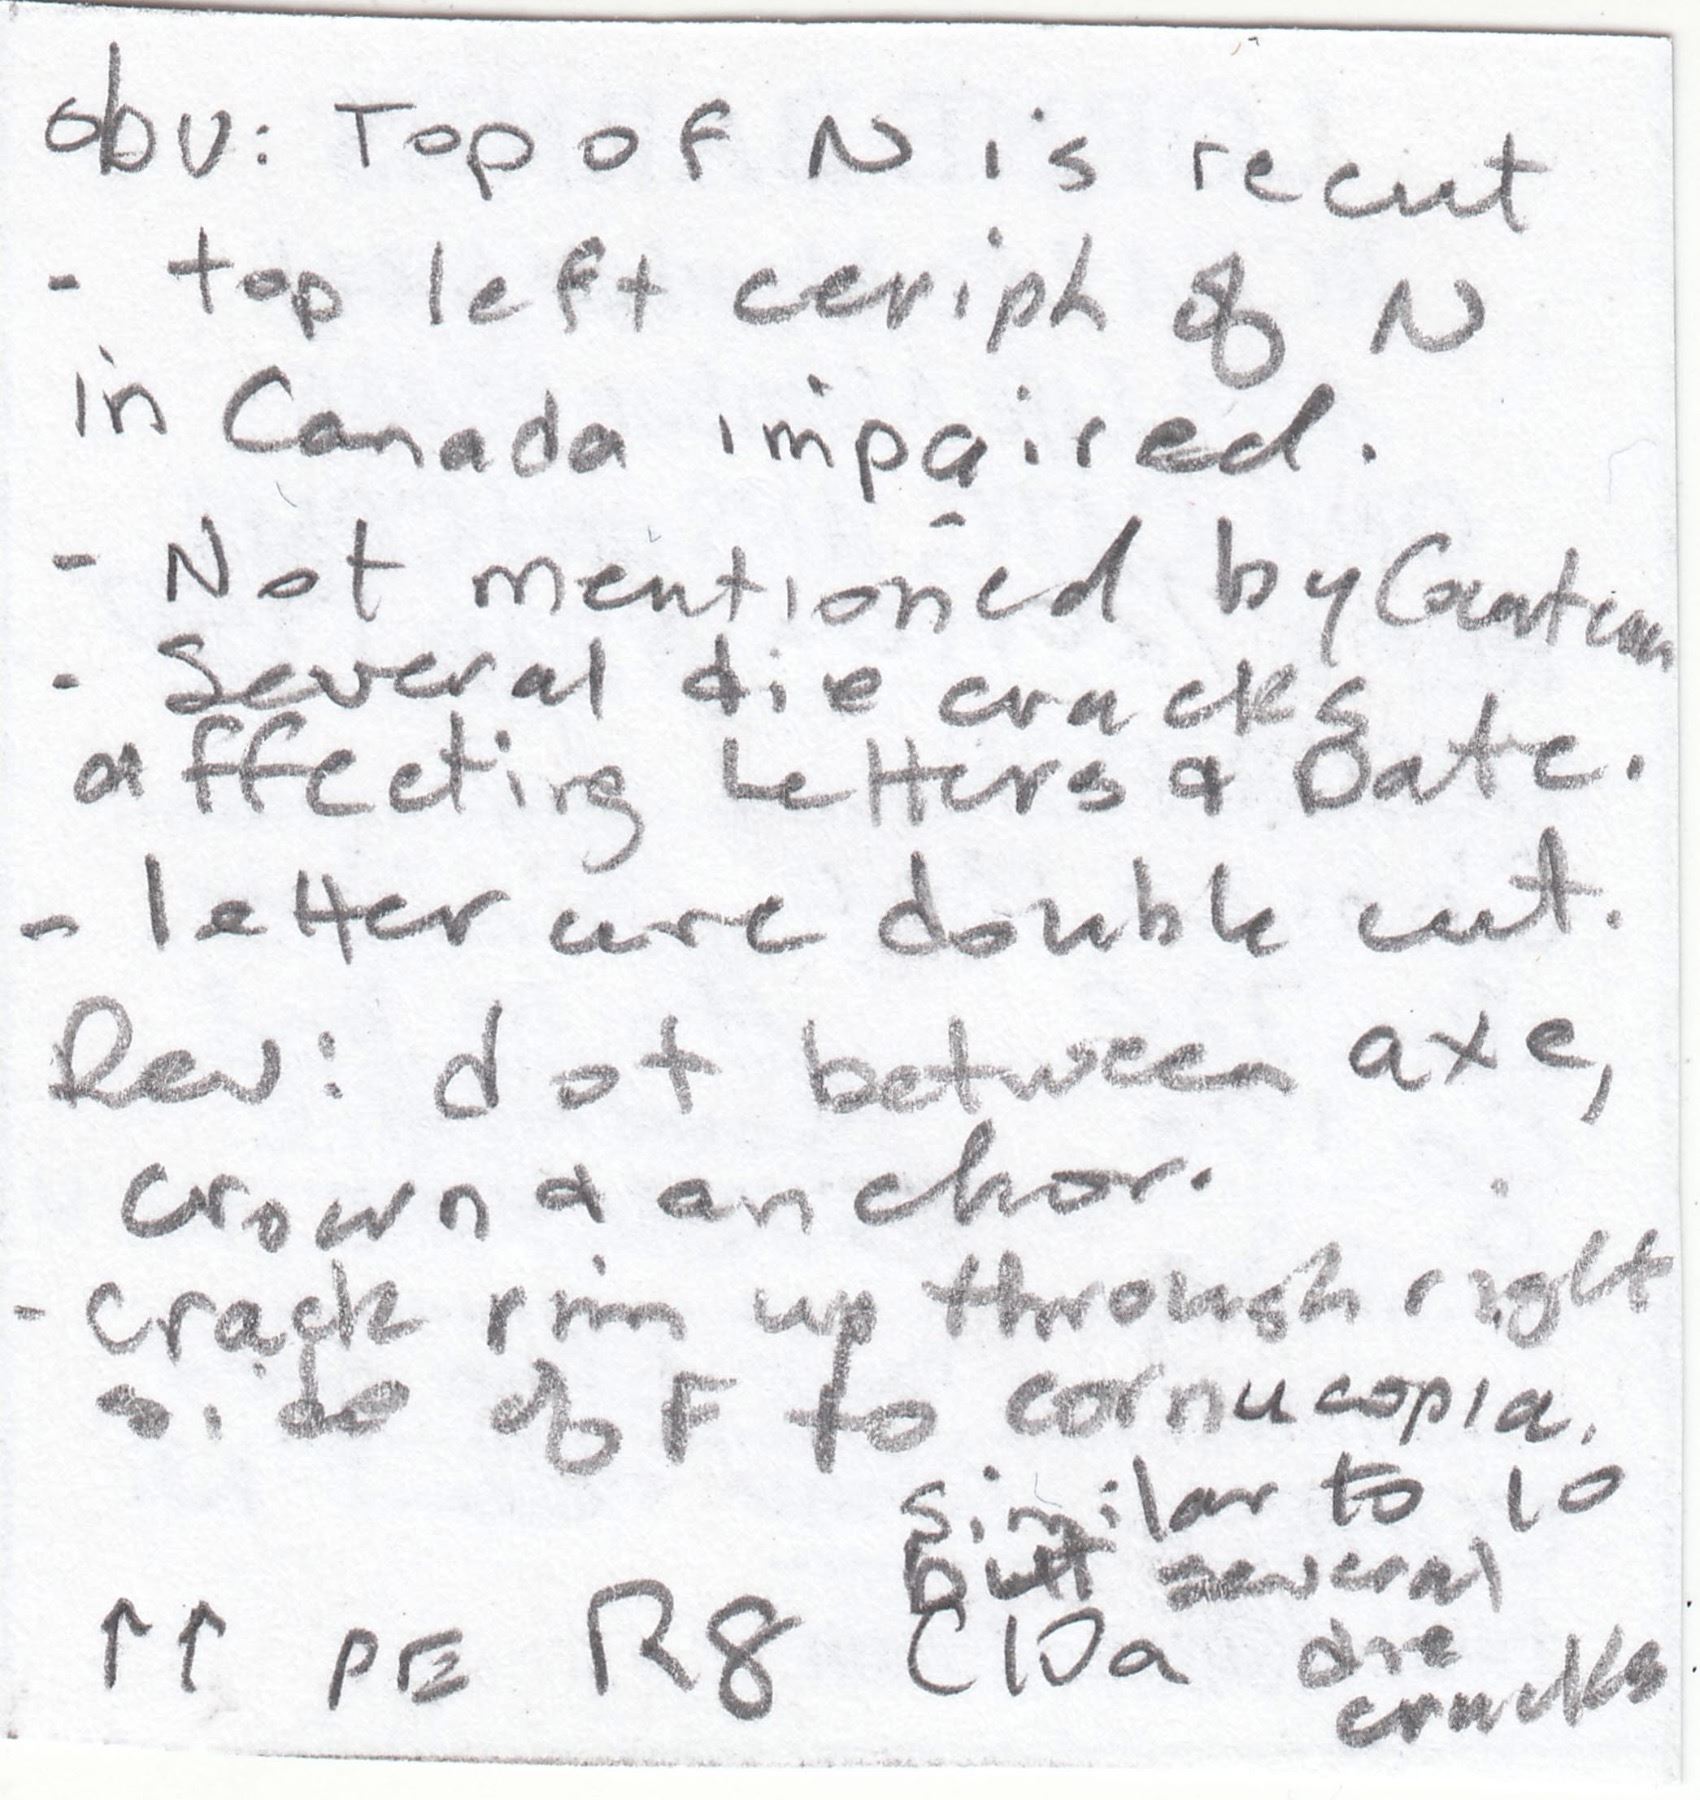 obv: Top of N is recut
- top left ceriph of N
in Canada impaired.
- Not mentioned by
- Several die cracks
affecting Letters & Date.
- letter are double cut.
Rev: dot between axe,
crown & anchor.
- crack rim up through right
side of F to cornucopia.
similar to 10
but several
↑↑ PE R8 C10a die
cracks